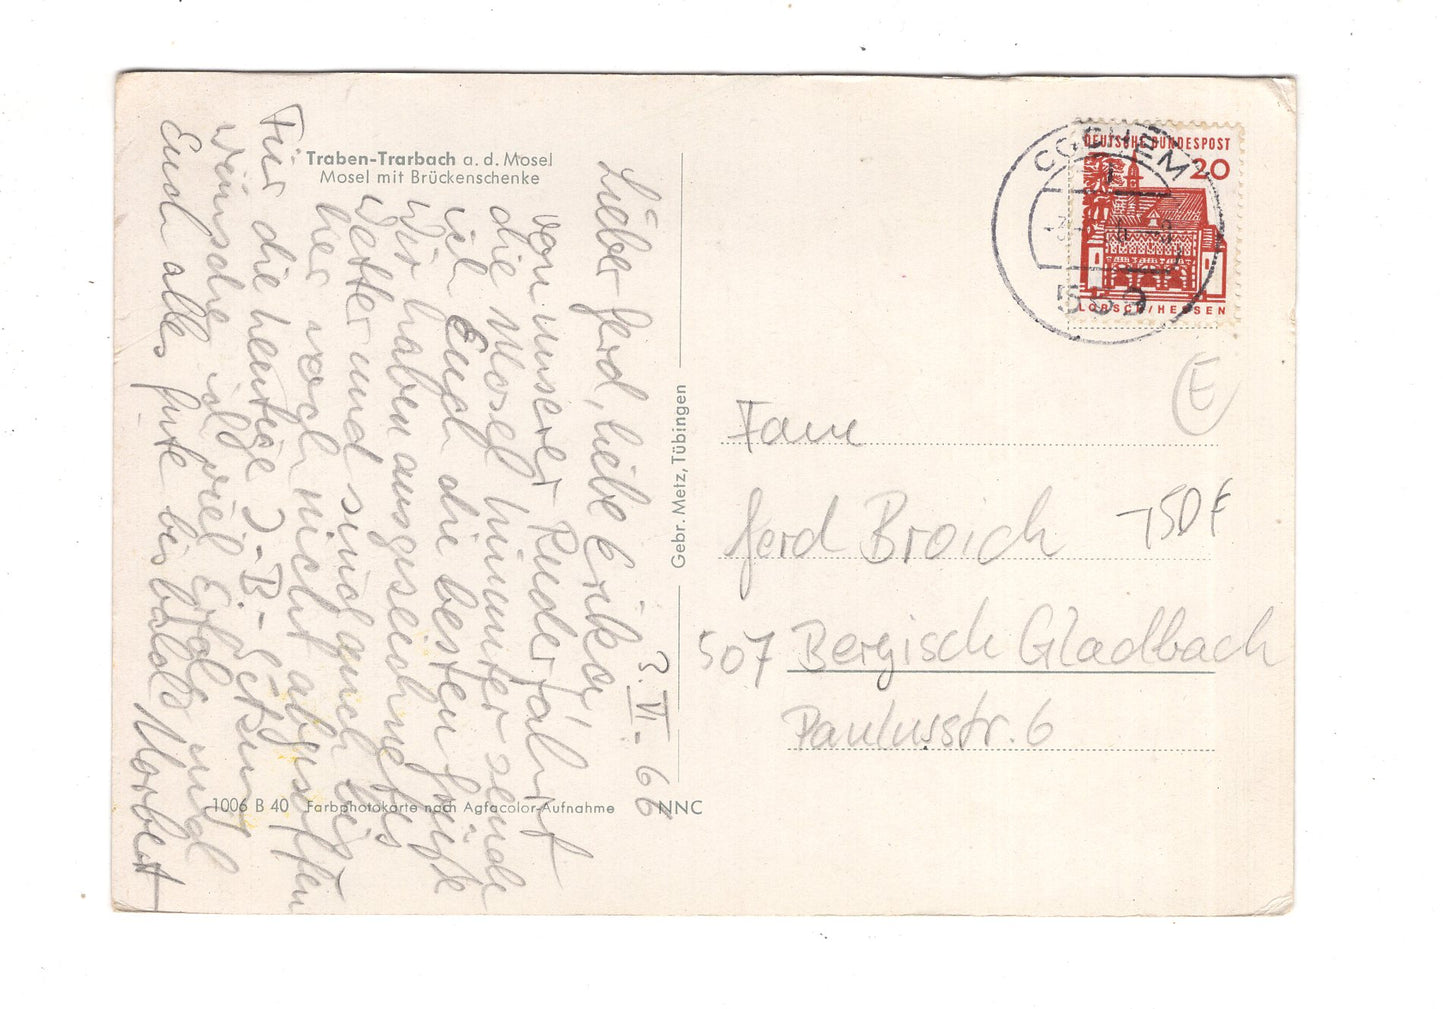 Traben-Trarbach a. d. Mosel
Mosel mit Brückenschenke
3. VI. 66
Lieber Gerd, liebe Erika,
von unserer Ruderfahrt
die Mosel hinunter sende
ich Euch die besten Grüße
Wir haben ausgezeichnetes
Wetter und sind auch bis-
her noch nicht abgesoffen
Für die heutige
wünsche ich viel Erfolg und
Euch alles Gute bis balde Norbert
1006 B 40 Farbphotokarte nach Agfacolor-Aufnahme NNC
Gebr. Metz, Tübingen
DEUTSCHE BUNDESPOST
20
LORSCH/HESSEN
COCHEM
559
E
Gerd Broich
750 F
507 Bergisch Gladbach
Paulusstr. 6